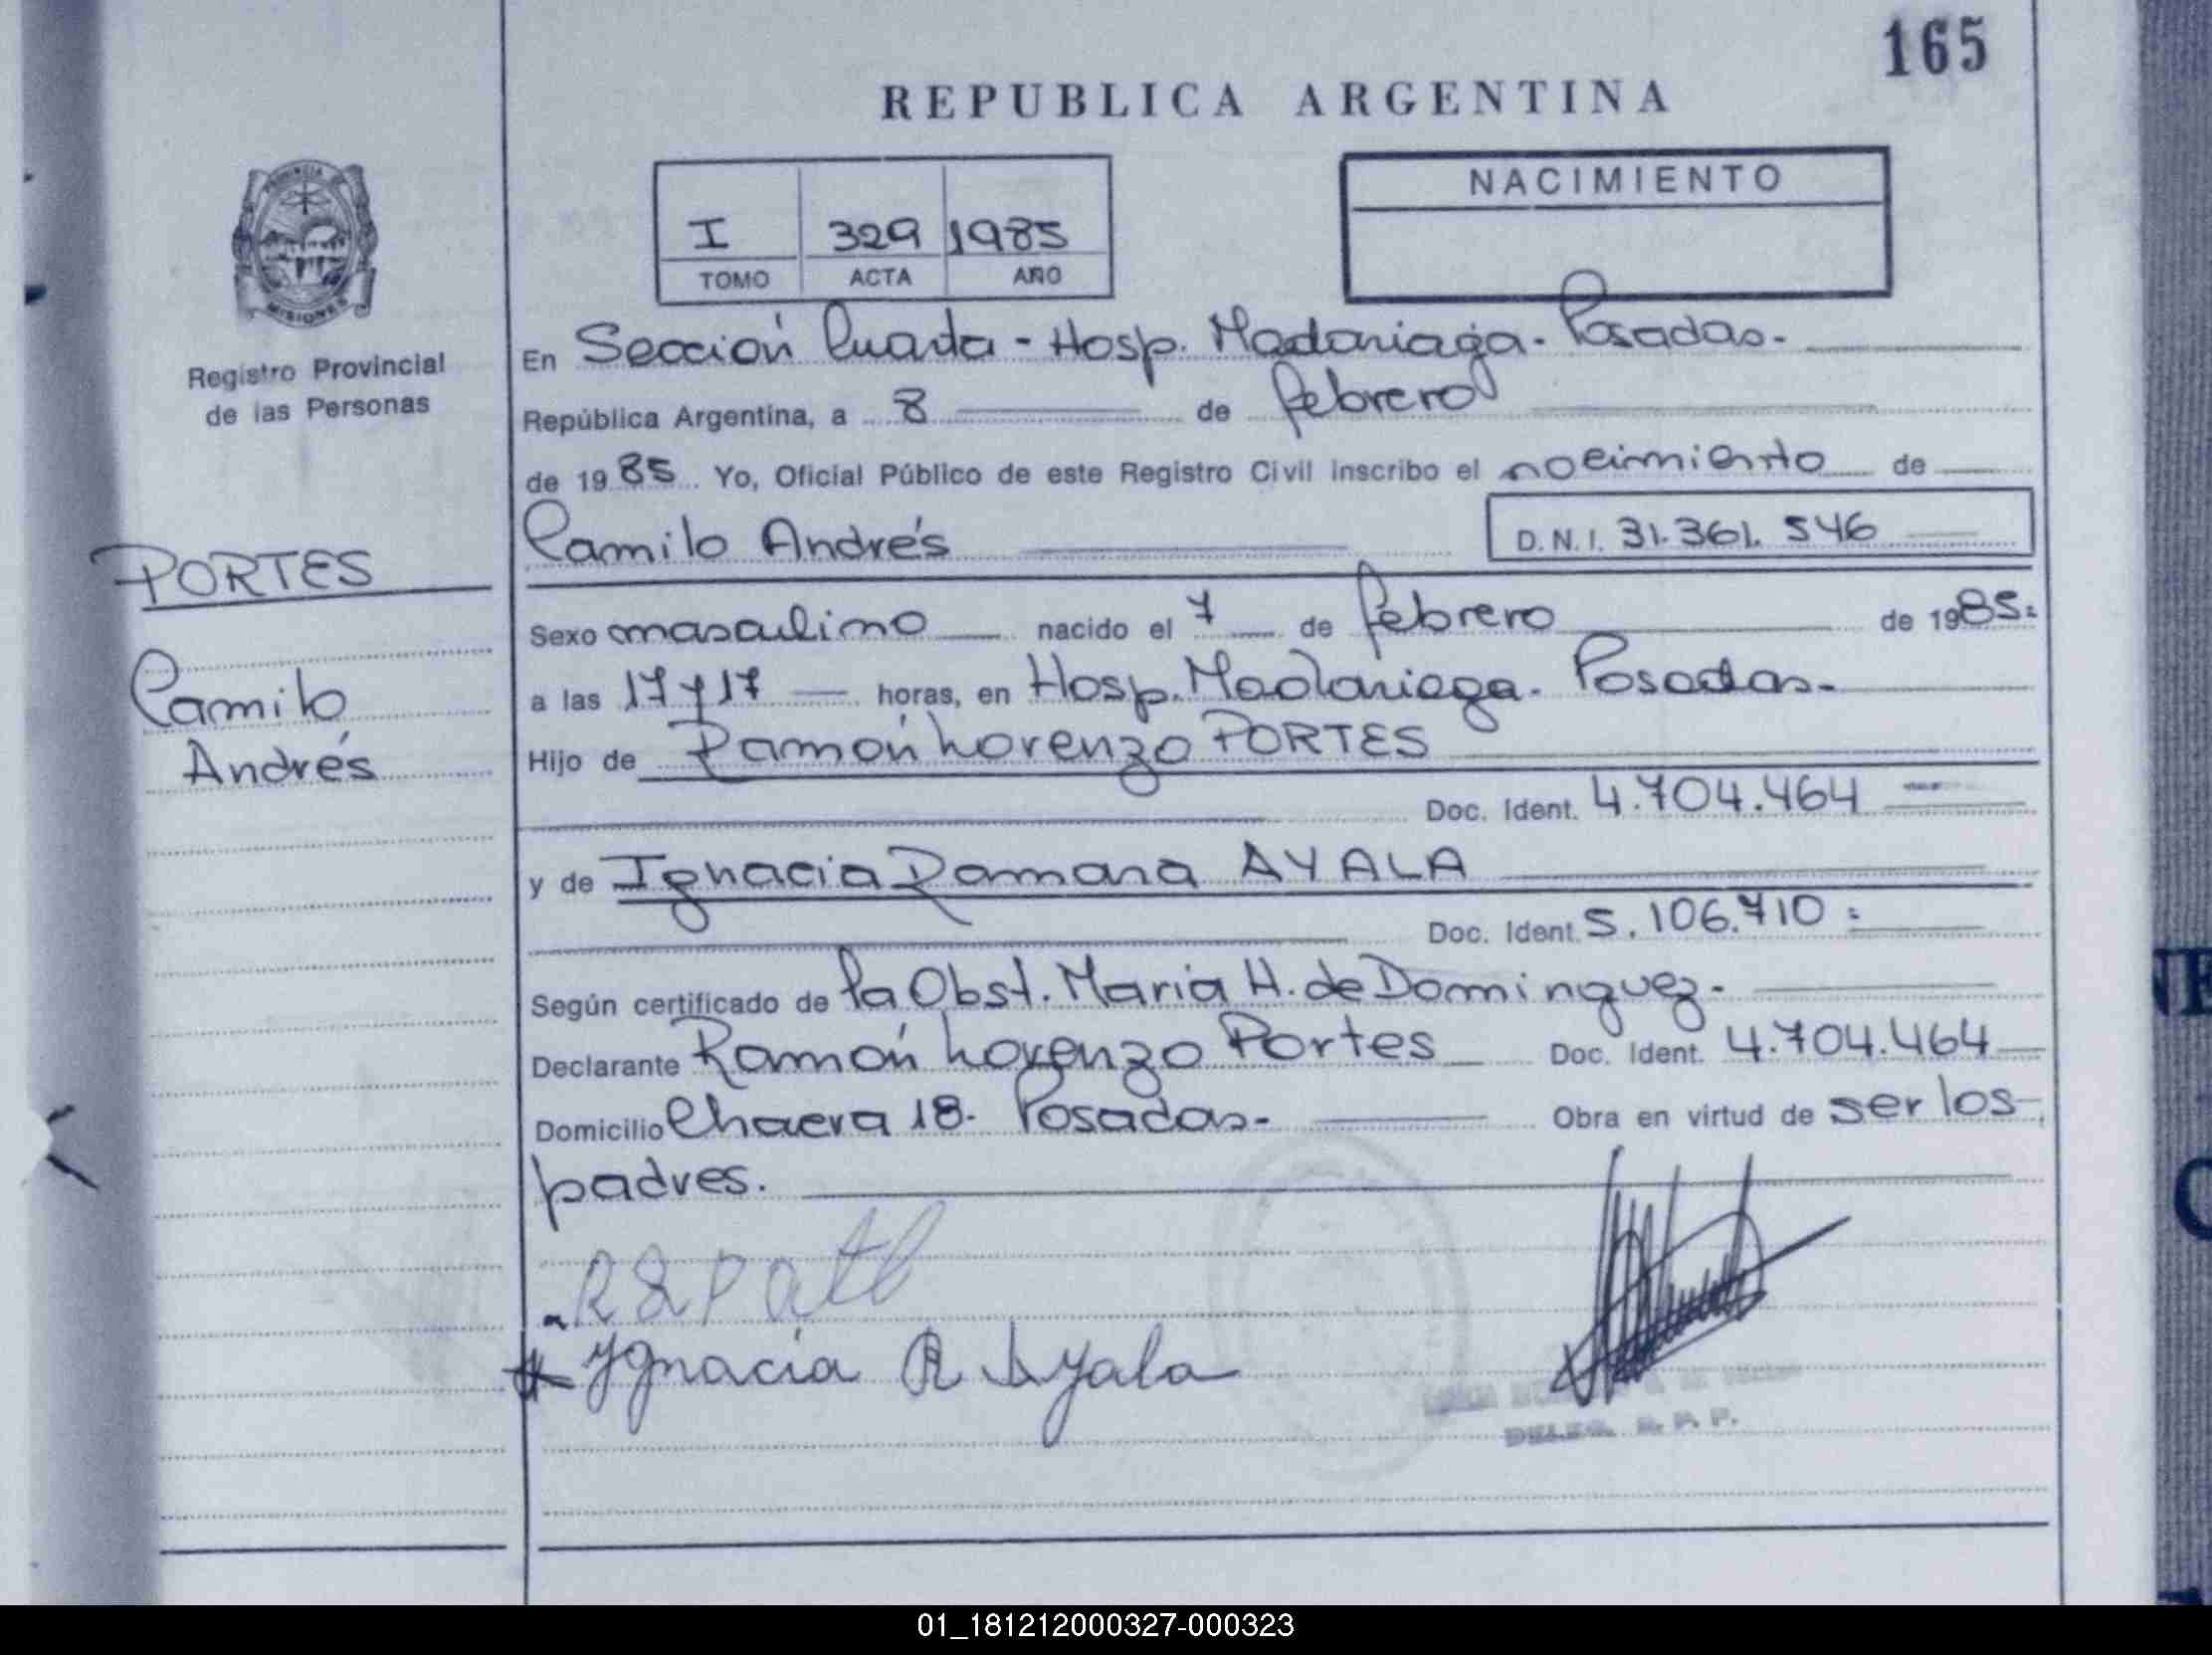 165
REPUBLICA ARGENTINA
PROVINCIA DE
MISIONES
Registro Provincial
de las Personas
I 329 1985
TOMO ACTA AÑO
NACIMIENTO
En Sección Cuarta - Hosp. Madariaga - Posadas -
República Argentina, a 8 de febrero
de 1985. Yo, Oficial Público de este Registro Civil inscribo el nacimiento de
Camilo Andrés D.N.I. 31.361.546
PORTES
Camilo
Andrés
Sexo masculino nacido el 7 de febrero de 1985:
a las 17 y 17 horas, en Hosp. Madariaga - Posadas -
Hijo de Ramón Lorenzo PORTES
Doc. Ident. 4.704.464
y de Ignacia Ramona AYALA
Doc. Ident. 5.106.710:
Según certificado de la Obst. Maria H. de Dominguez -
Declarante Ramón Lorenzo Portes Doc. Ident. 4.704.464
Domicilio Chacra 18 - Posadas - Obra en virtud de ser los
padres.
Ygnacia R Ayala
DELEG. R. P. P.
01_181212000327-000323